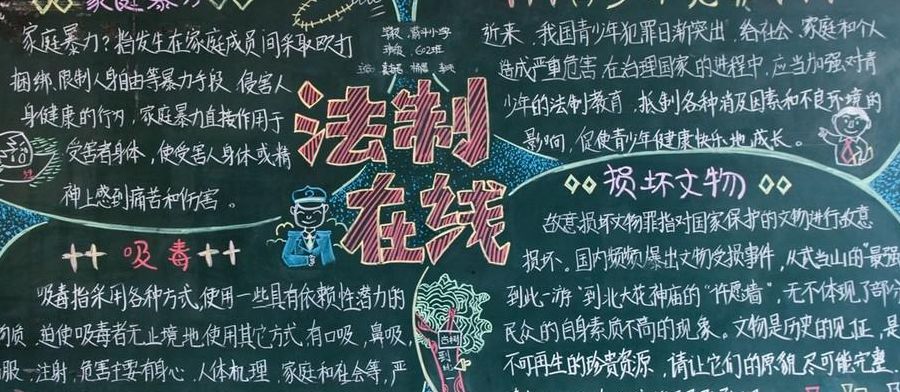 家庭暴力
家庭暴力?指发生在家庭成员间采取殴打
捆绑.限制人身自由等暴力手段.侵害人
身健康的行为,家庭暴力直接作用于
受害者身体,使受害人身体或精
神上感到痛苦和伤害。
602班
法制
在线
近来,我国青少年犯罪日渐突出,给社会、家庭和个人
造成严重危害.在治理国家的进程中,应当加强对青
少年的法制教育.抵制各种消极因素和不良环境的
影响,促使青少年健康快乐地成长。
吸毒
吸毒指采用各种方式,使用一些具有依赖性潜力的
物质.迫使吸毒者无止境地使用其它方式.有口吸,鼻吸,
服.注射.危害主要有身心.人体机理.家庭和社会等,严
损坏文物
故意损坏文物罪指对国家保护的文物进行故意
损坏。国内频频爆出文物受损事件,从武当山的“最强
到此一游”到北大花神庙的“许愿墙”,无不体现了部分
民众的自身素质不高的现象。文物是历史的见证,是
不可再生的珍贵资源,请让它们的原貌尽可能完整